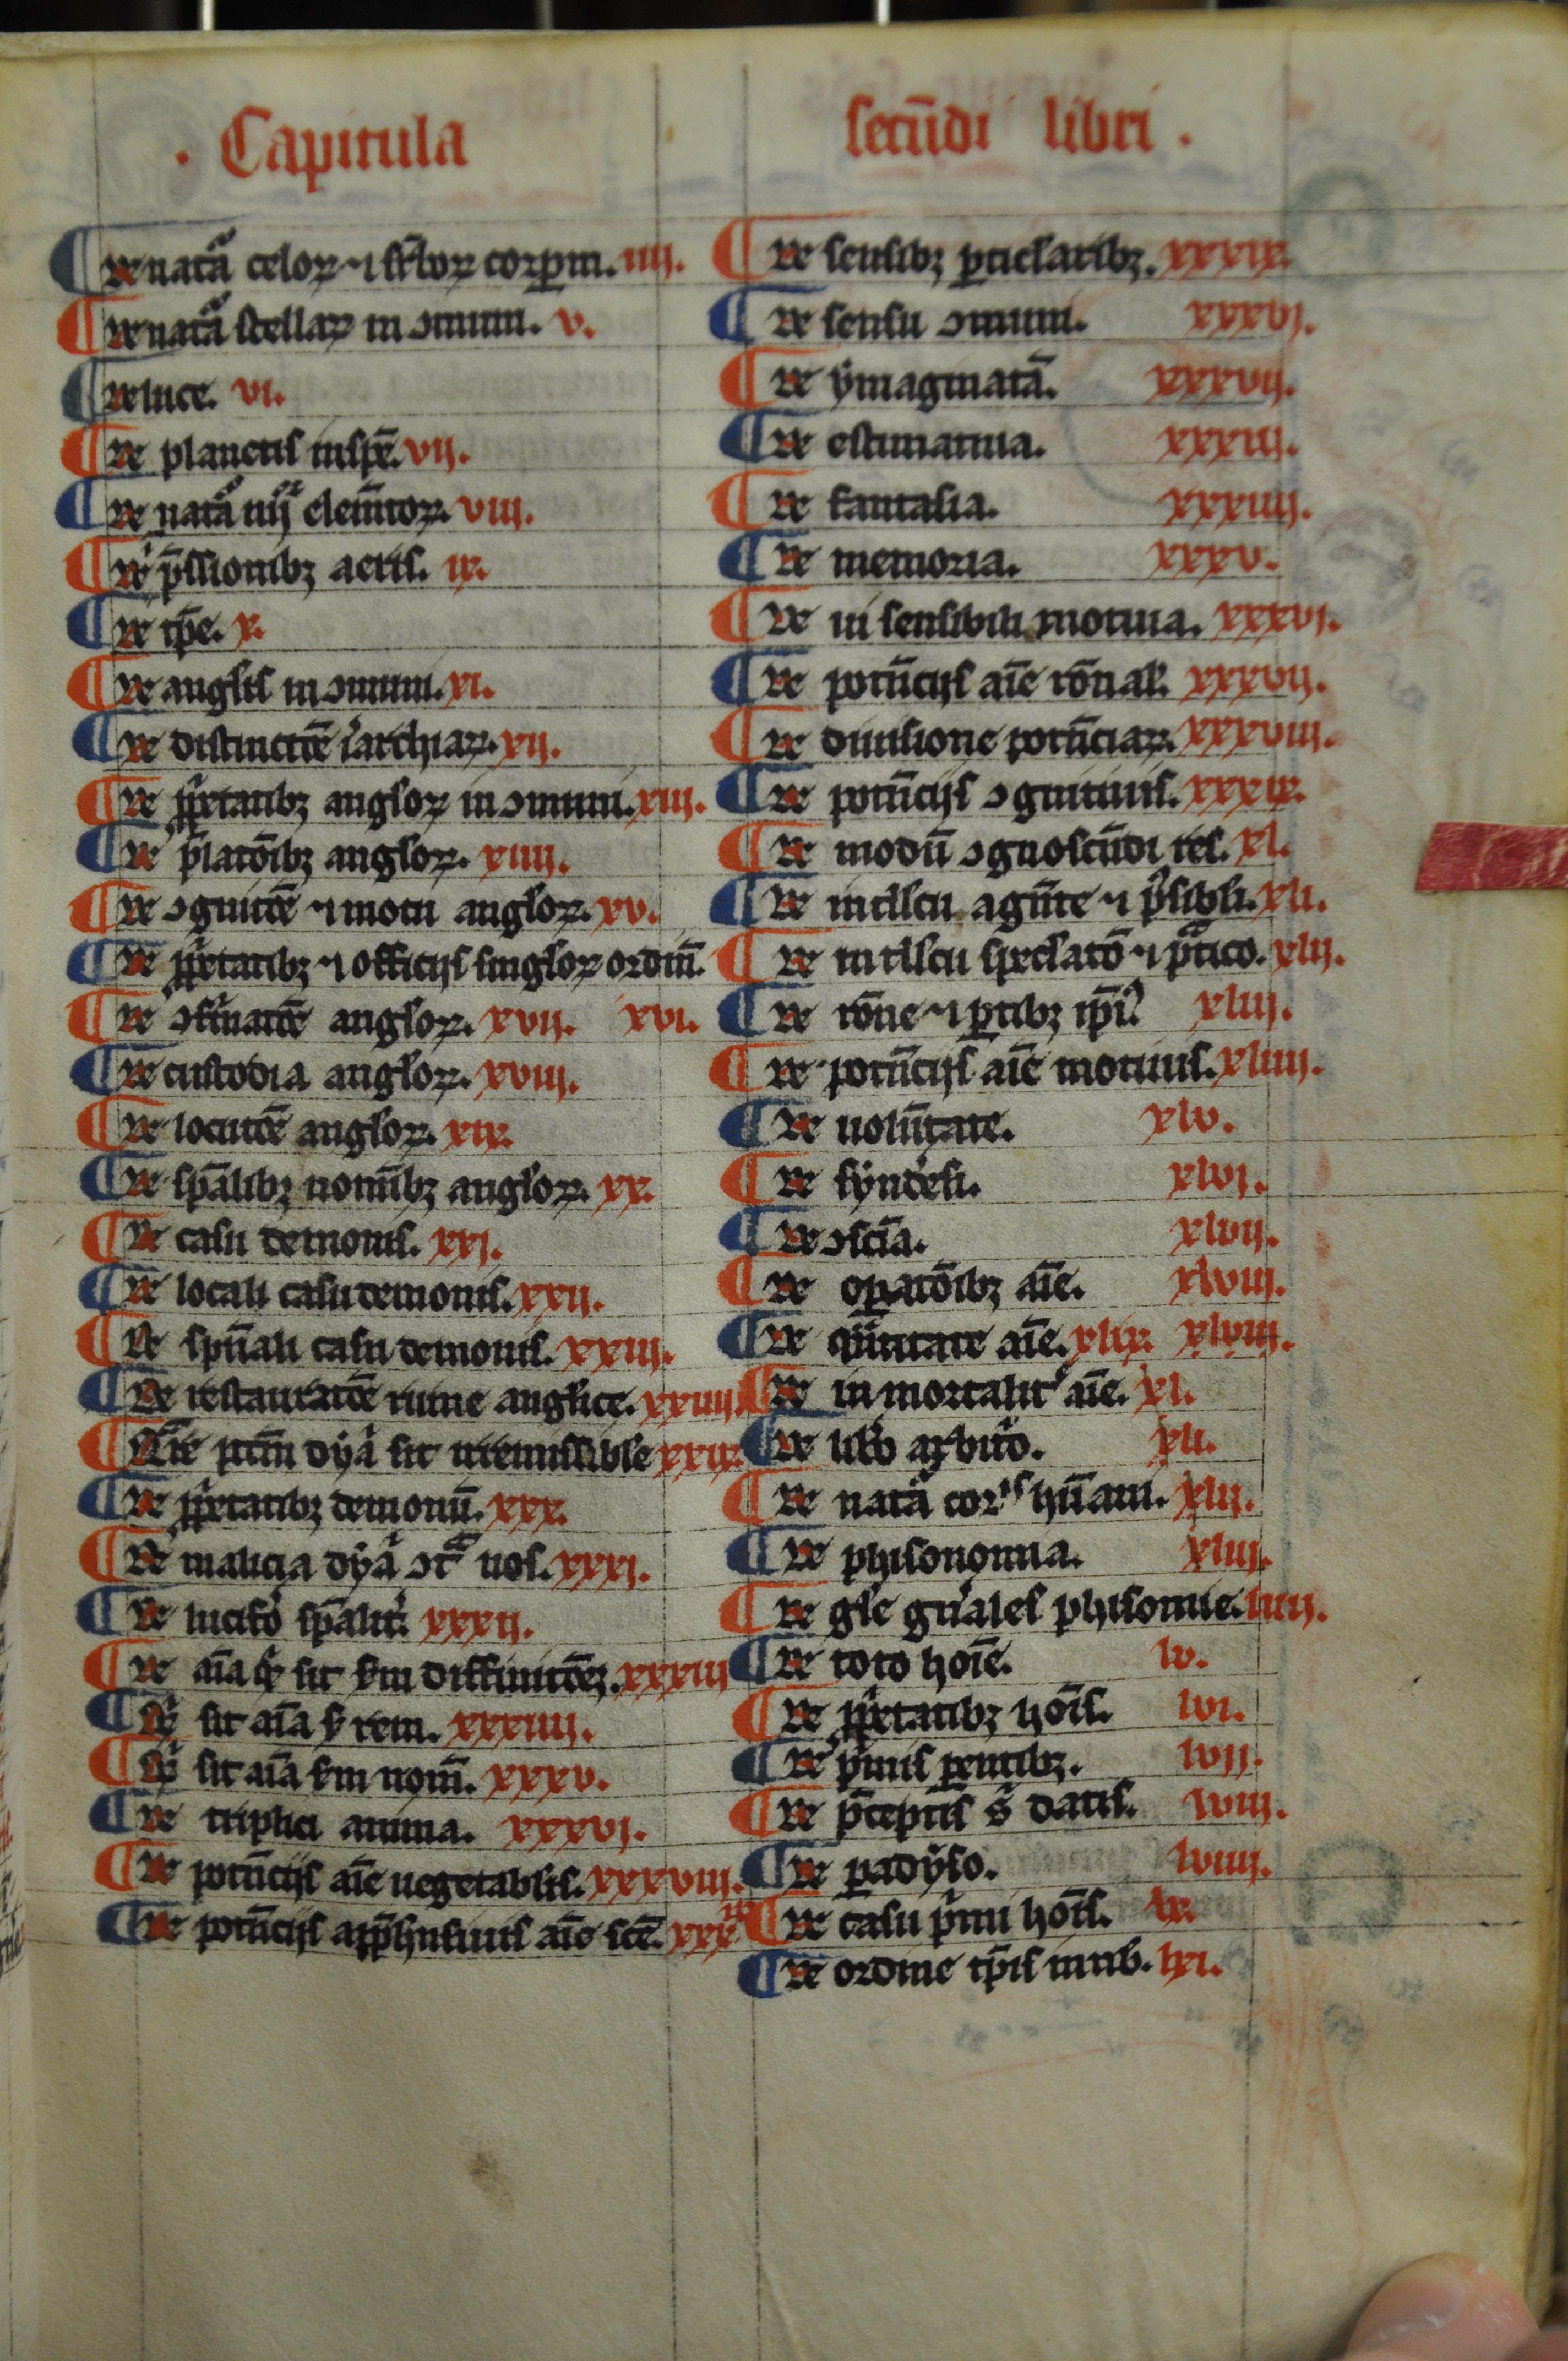 . Capitula secūdi libri .
¶ De natā celoꝝ ⁊ sr̄loꝝ corꝑm. iiii.
¶ De natā stellaꝝ in ↄmuni. v.
¶ De luce. vi.
¶ De planetis in spē. vii.
¶ De natā iiij elem̄toꝝ. viii.
¶ De īp̄ssionibꝫ aeris. ix.
¶ De tp̄e. x.
¶ De anglis in ↄmuni. xi.
¶ De distinctōe ierarchiaꝝ. xii.
¶ De ꝓpͥetatibꝫ angloꝝ in ↄmuni. xiii.
¶ De p̄latōibꝫ angloꝝ. xiiii.
¶ De ↄgnitōe ⁊ motu angloꝝ. xv.
¶ De ꝓpͥetatibꝫ ⁊ officijs singloꝝ ordinū.
¶ De ↄfirmatōe angloꝝ. xvii. xvi.
¶ De custodia angloꝝ. xviii.
¶ De locutōe angloꝝ. xix.
¶ De sp̄alibꝫ nomībꝫ angloꝝ. xx.
¶ De casu demonis. xxi.
¶ De locali casu demonis. xxii.
¶ De spūali casu demonis. xxiii.
¶ De restauratōe ruine anglice. xxiiii.
¶ Quare pctm̄ dyaͥ sit irremissibile xxix.
¶ De ꝓpͥetatibꝫ demonū. xxx.
¶ De malicia dyaͥ ↄtͣ nos. xxxi.
¶ De lucifo sp̄alit̾. xxxii.
¶ De aīa qͥd sit sm diffinitōeꝫ. xxxiii
¶ Qͥd sit aīa s rem. xxxiiii.
¶ Qͥd sit aīa sm nom̄. xxxv.
¶ De triplici anima. xxxvi.
¶ De potēcijs aīe uegetabilis. xxxviii.
¶ De potēcijs app̄hn̄siuis aīe sc̄e. xxxix
¶ De sensibꝫ ꝑticlaribꝫ. xxxix.
¶ De sensu ↄmuni. xxxvi.
¶ De ymaginatā. xxxvii.
¶ De estimatiua. xxxiii.
¶ De fantasia. xxxiiii.
¶ De memoria. xxxv.
¶ De ui sensibili motiua. xxxvi.
¶ De potēcijs aīe rōnal. xxxvii.
¶ De diuisione potēciaꝝ. xxxviii.
¶ De potēcijs ↄgnitiuis. xxxix.
¶ De modū ↄgnoscēdi res. xl.
¶ De intllcu agēte ⁊ possibli. xli.
¶ De intllcu speclatō ⁊ pͣctico. xlii.
¶ De rōne ⁊ ꝑtibꝫ ipī. xliii.
¶ De potēcijs aīe motiuis. xliiii.
¶ De uolūtate. xlv.
¶ De synderesi. xlvi.
¶ De ↄscīa. xlvii.
¶ De oꝑatōibꝫ aīe. xlviii.
¶ De qͣntitate aīe. xlix. xlviii.
¶ De inmortalit̾ aīe. xl.
¶ De lib̾o arbitͥo. xli.
¶ De natā corꝑis hūani. xlii.
¶ De phisonomia. xliii.
¶ De gle gn̄ales phisonie. liiii.
¶ De toto hoīe. lv.
¶ De ꝓpͥetatibꝫ hoīs. lvi.
¶ De pͥmis ꝑentibꝫ. lvii.
¶ De p̄ceptis s datis. lviii.
¶ De ꝑadyso. lviiii.
¶ De casu pͥmi hoīs. lx.
¶ De ordine tp̄is in nub. lxi.